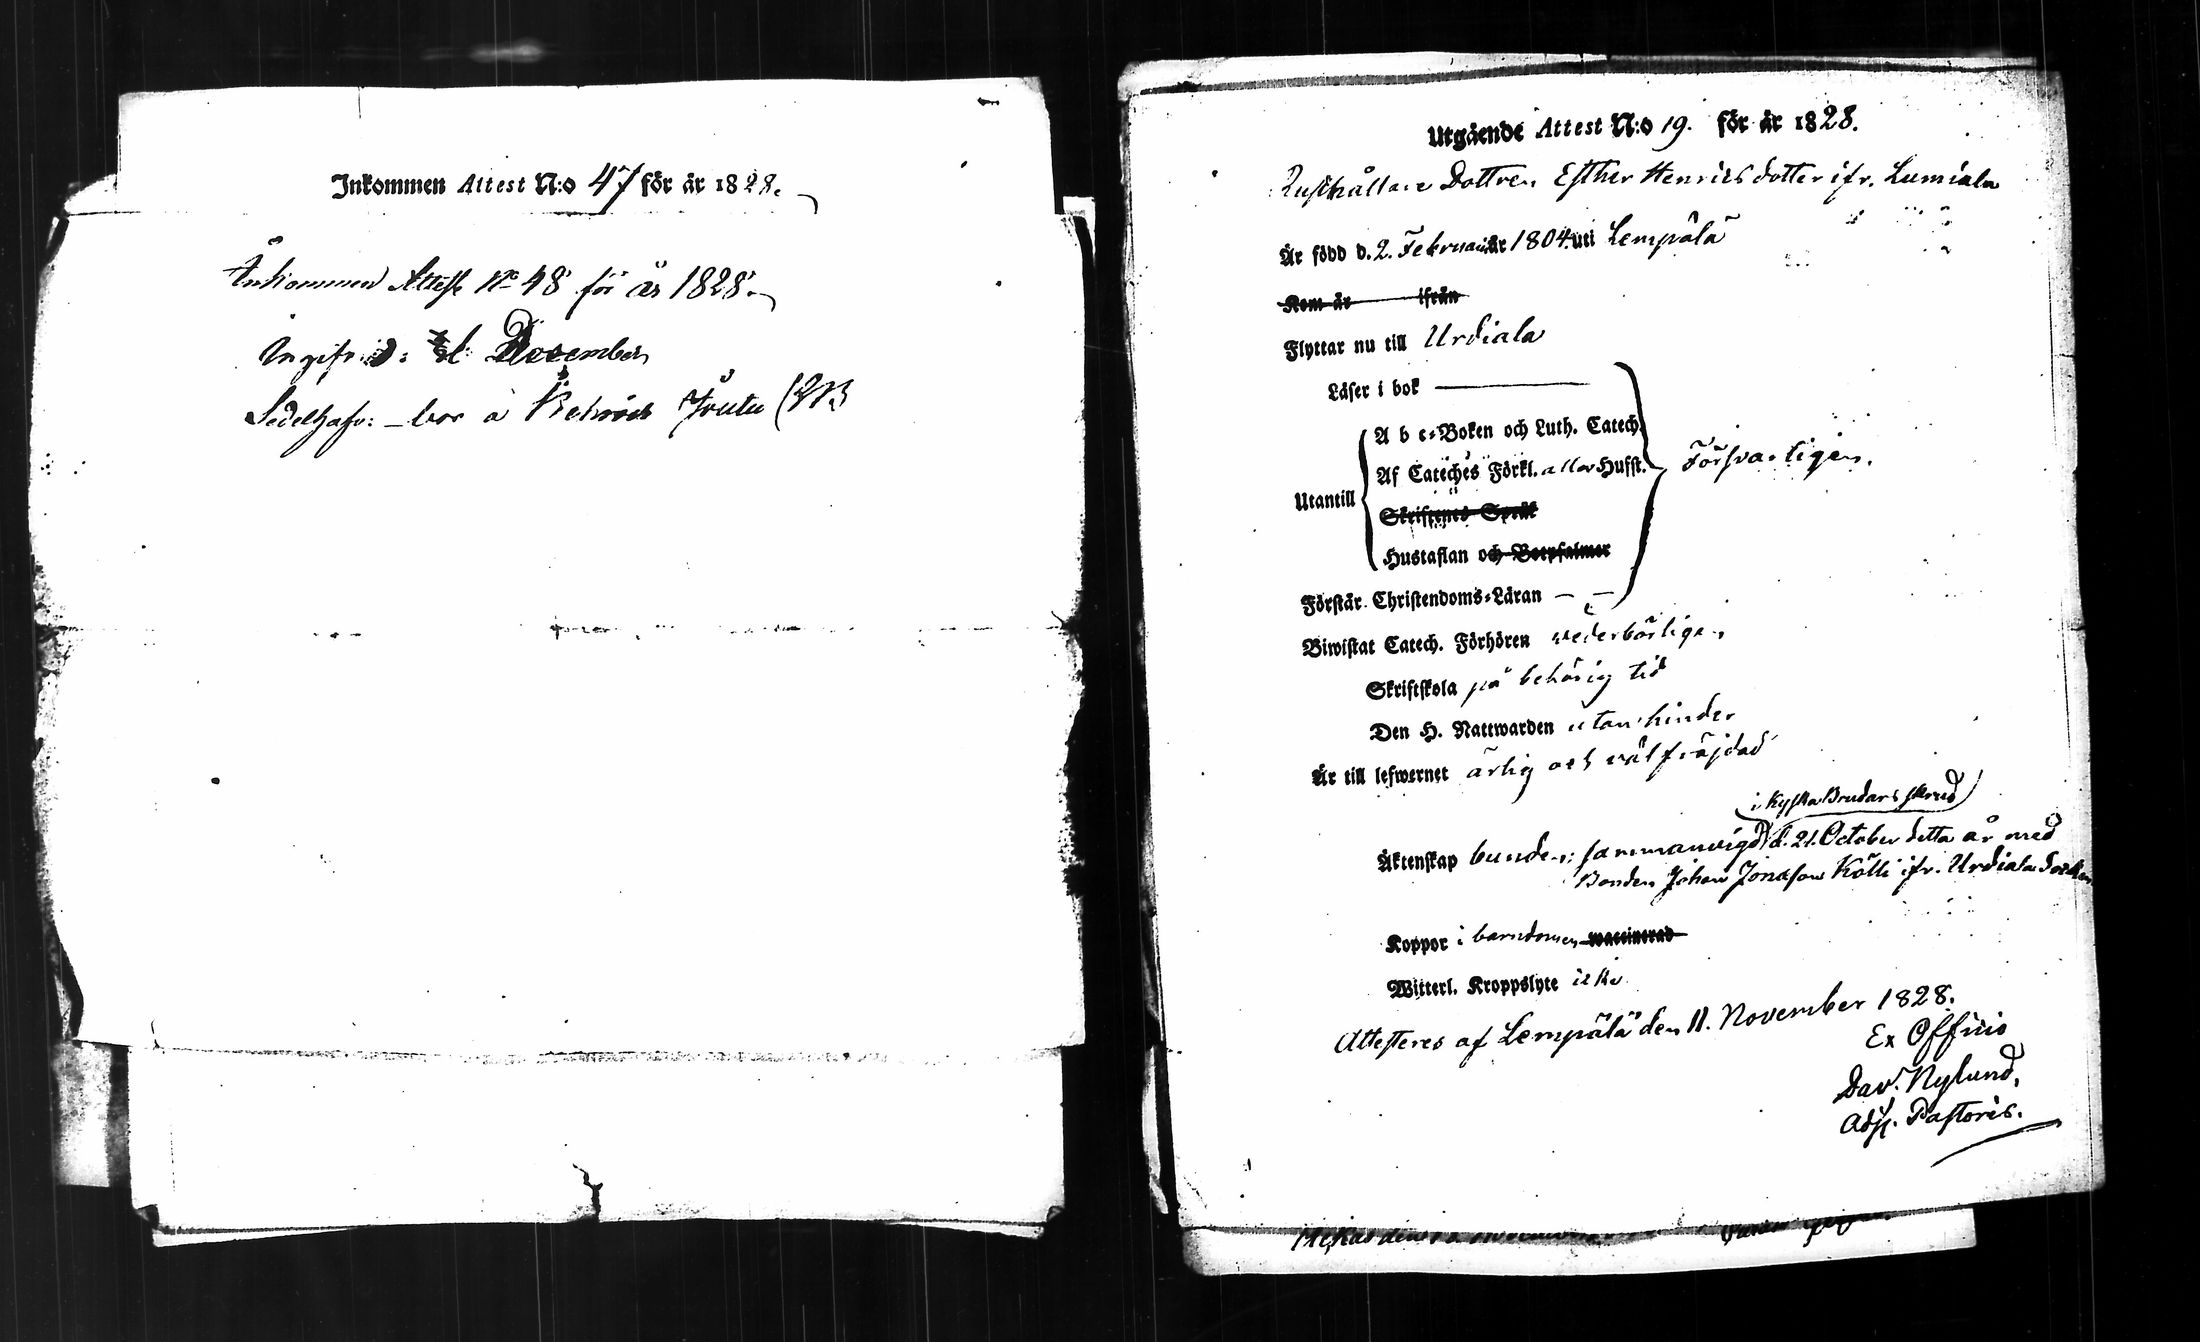 Inkommen Attest N:o 47 för år 1828.
Ankommen Attest No 48 för år 1828.
Ingifv. d: December
Sedelhafv: – bor å
Utgående Attest N:o 19. för år 1828.
Rusthållare Dottren Esther Henricsdotter ifr. Lumiala
Är född d. 2. Februarii år 1804 uti Lempälä
Kom år ifrån
Flyttar nu till Urdiala
Läser i bok
A b c-Boken och Luth. Catech.
Af Cateches Förkl. allor Hufst.
Försvarligen.
Utantill
Skriftenes Språk
Hustaflan och Botpsalmer
Förstår Christendoms-Läran
Biwistat Catech. Förhören vederbörligen
Skriftskola på behörig tid
Den H. Nattwarden utan hinder
Är till lefwernet ärlig och välfräjdad
i Kyska Brudars skrud
Äktenskap bunden; sammanvigd d. 21. October detta år med
Bonden Johan Jonasson Kölli ifr. Urdiala Socken
Koppor i barndomen waccinerad
Witterl. Kroppslyte icke
Attesteras af Lempälä den 11. November 1828.
Ex Officio
Dav. Nylund,
Adj. Pastoris.